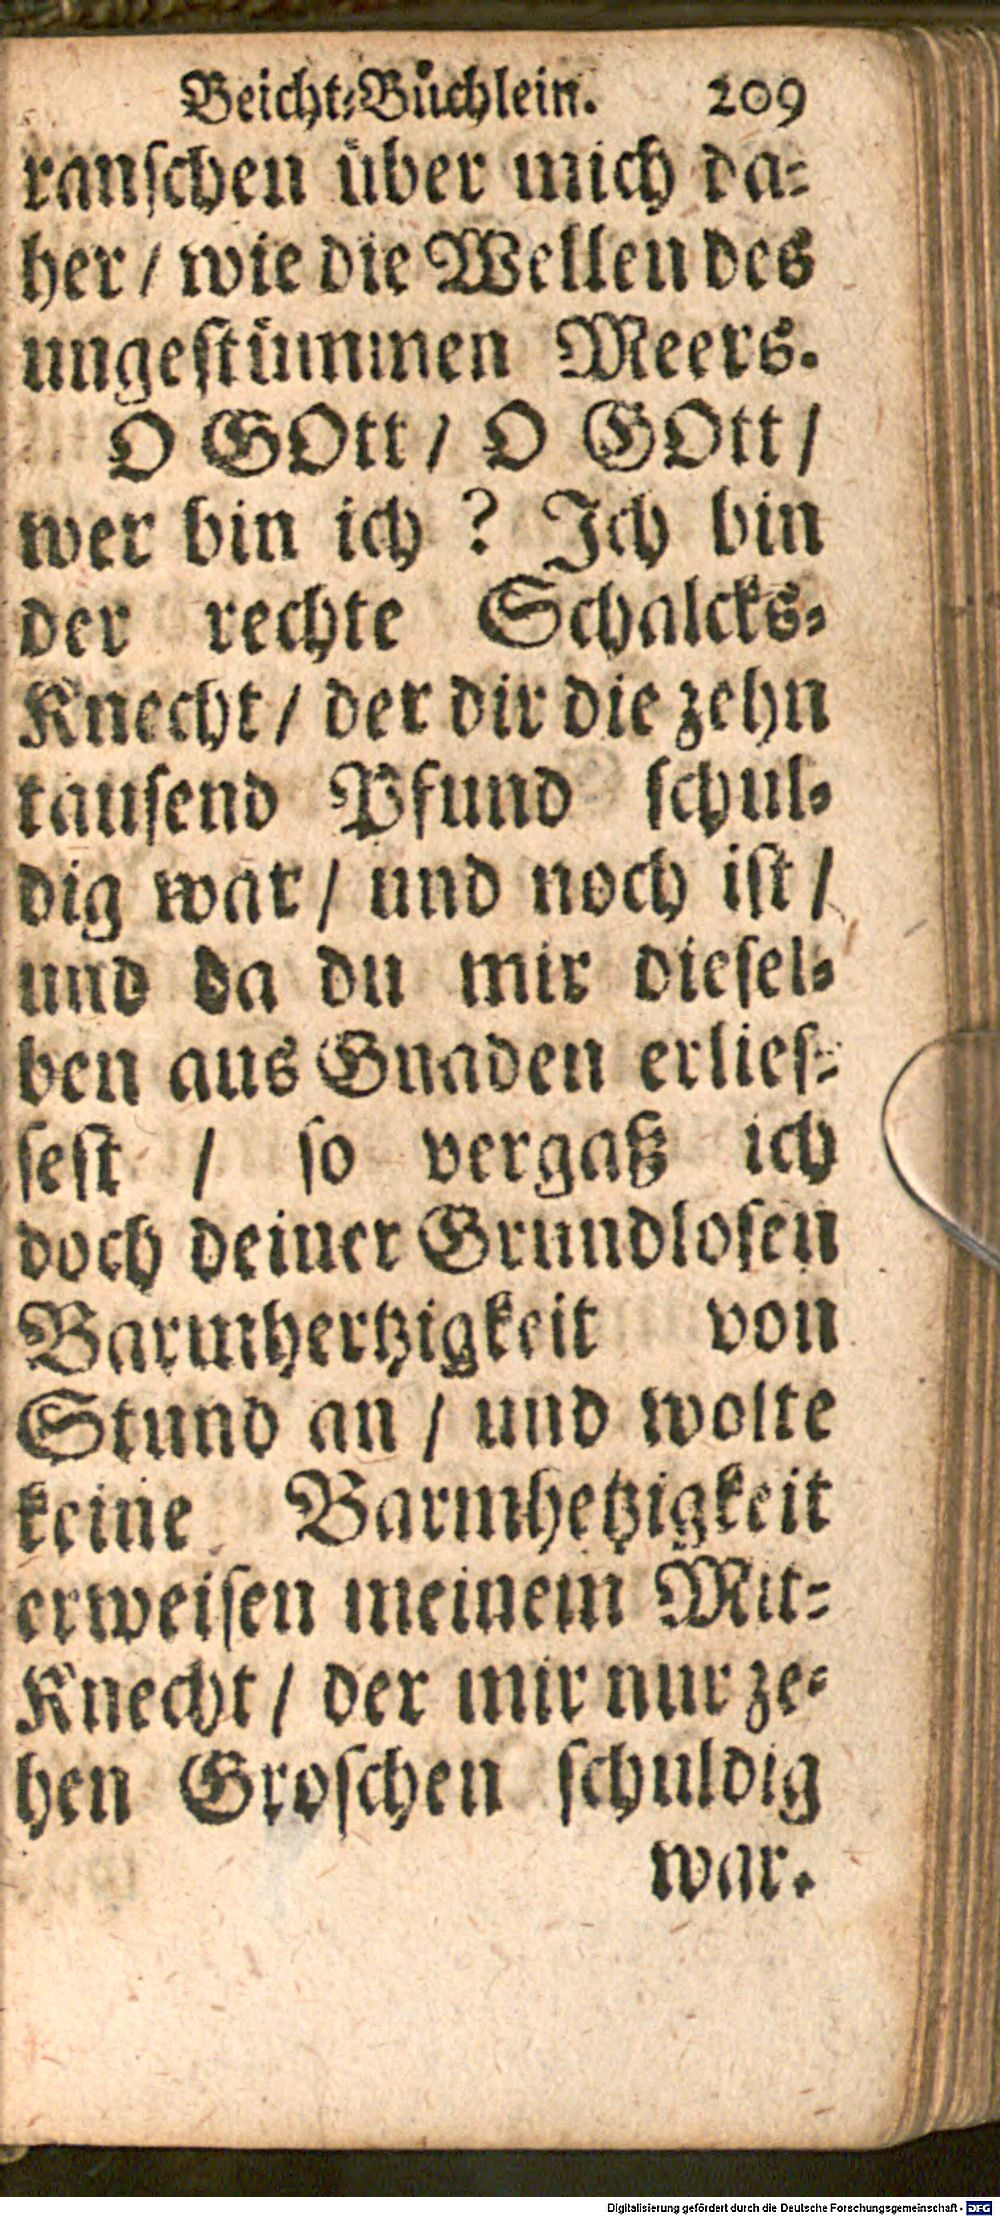 Beicht-Bůchlein. 209
ranschen über mich da-
her / wie die Wellen des
ungestümmen Meers.
O GOtt / O GOtt /
wer bin ich ? Ich bin
der rechte Schalcks-
Knecht / der dir die zehn
tausend Pfund schul-
dig war / und noch ist /
und da du mir diesel-
ben aus Gnaden erlies-
sest / so vergaß ich
doch deiner Grundlosen
Barmhertzigkeit von
Stund an / und wolte
keine Barmhetzigkeit
erweisen meinem Mit-
Knecht / der mir nur ze-
hen Groschen schuldig
war.
Digitalisierung gefördert durch die Deutsche Forschungsgemeinschaft - DFG